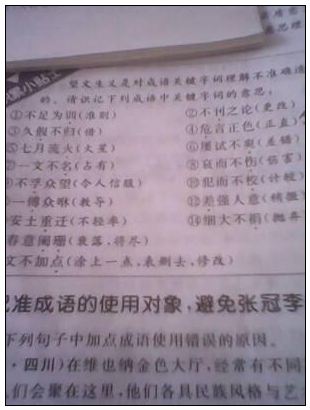 望文生义是对成语关键字词理解不准确造
的。请识记下列成语中关键字词的意思：
①不足为训(准则) ②不刊之论(更改)
③久假不归(借) ④危言正色(正直)
⑤七月流火(大星) ⑥屡试不爽(差错)
一文不名(占有) ⑧哀而不伤(伤害)
不孚众望(令人信服) ⑩犯而不校(计较)
一傅众咻(教导) ⑫差强人意(稍微
安土重迁(不轻率) ⑭细大不捐(抛弃
春意阑珊(衰落,将尽)
文不加点(涂上一点,表删去,修改)
准成语的使用对象,避免张冠李
下列句子中加点成语使用错误的原因。
·四川)在维也纳金色大厅,经常有不同
们会聚在这里,他们各具民族风格与艺